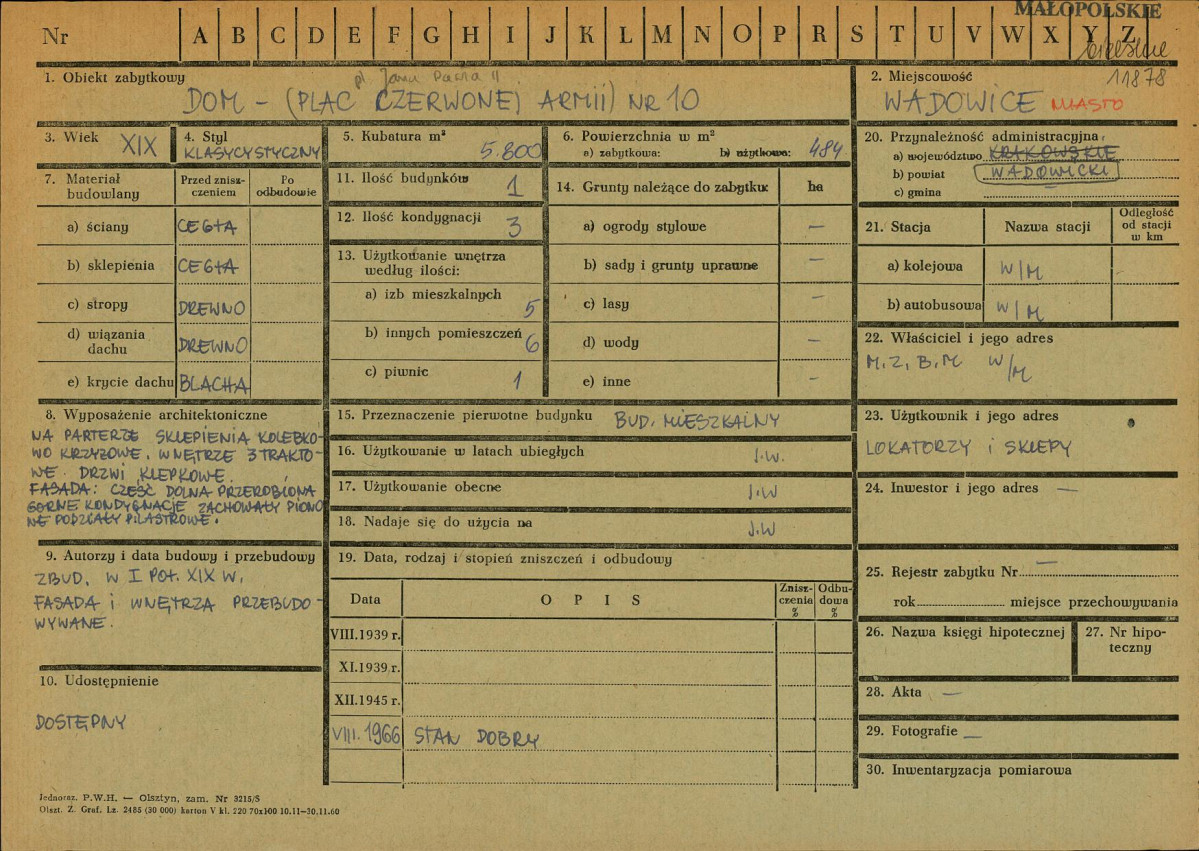 MAŁOPOLSKIE
Nr A B C D E F G H I J K L M N O P R S T U V W X Y Z
bielskie
11878
1. Obiekt zabytkowy
pl. Jana Pawła II
DOM - (PLAC CZERWONEJ ARMII) NR 10
2. Miejscowość
WADOWICE MIASTO
3. Wiek XIX
4. Styl
KLASYCYSTYCZNY
5. Kubatura m³
5.800
6. Powierzchnia w m²
a) zabytkowa: b) użytkowa: 484
7. Materiał budowlany
Przed zniszczeniem
Po odbudowie
a) ściany CEGŁA
b) sklepienia CEGŁA
c) stropy DREWNO
d) wiązania dachu DREWNO
e) krycie dachu BLACHA
8. Wyposażenie architektoniczne
NA PARTERZE SKLEPIENIA KOLEBKO-
WO KRZYŻOWE. WNĘTRZE 3 TRAKTO-
WE. DRZWI KLEPKOWE.
FASADA: CZĘŚĆ DOLNA PRZEROBIONA
GÓRNE KONDYGNACJE ZACHOWAŁY PIONO
NE PODZIAŁY PILASTROWE.
9. Autorzy i data budowy i przebudowy
ZBUD. W I POŁ. XIX W.
FASADA i WNĘTRZA PRZEBUDO-
WYWANE.
10. Udostępnienie
DOSTĘPNY
11. Ilość budynków 1
12. Ilość kondygnacji 3
13. Użytkowanie wnętrza
według ilości:
a) izb mieszkalnych 5
b) innych pomieszczeń 6
c) piwnic 1
14. Grunty należące do zabytku ha
a) ogrody stylowe —
b) sady i grunty uprawne —
c) lasy —
d) wody —
e) inne —
15. Przeznaczenie pierwotne budynku BUD. MIESZKALNY
16. Użytkowanie w latach ubiegłych J.W.
17. Użytkowanie obecne J.W
18. Nadaje się do użycia na J.W
19. Data, rodzaj i stopień zniszczeń i odbudowy
Data OPIS Zniszczenia % Odbudowa %
VIII.1939 r.
XI.1939 r.
XII.1945 r.
VIII.1966 STAN DOBRY
20. Przynależność administracyjna
a) województwo KRAKOWSKIE
b) powiat WADOWICKI
c) gmina
21. Stacja Nazwa stacji Odległość od stacji w km
a) kolejowa W/M -
b) autobusowa W/M
22. Właściciel i jego adres
M.Z.B.M W/M
23. Użytkownik i jego adres
LOKATORZY i SKLEPY
24. Inwestor i jego adres —
25. Rejestr zabytku Nr —
rok miejsce przechowywania
26. Nazwa księgi hipotecznej
27. Nr hipo-
teczny
28. Akta —
29. Fotografie —
30. Inwentaryzacja pomiarowa
Jednoraz. P.W.H. — Olsztyn, zam. Nr 3215/S
Olszt. Z. Graf. Lz. 2485 (30 000) karton V kl. 220 70x100 10.11—30.11.60